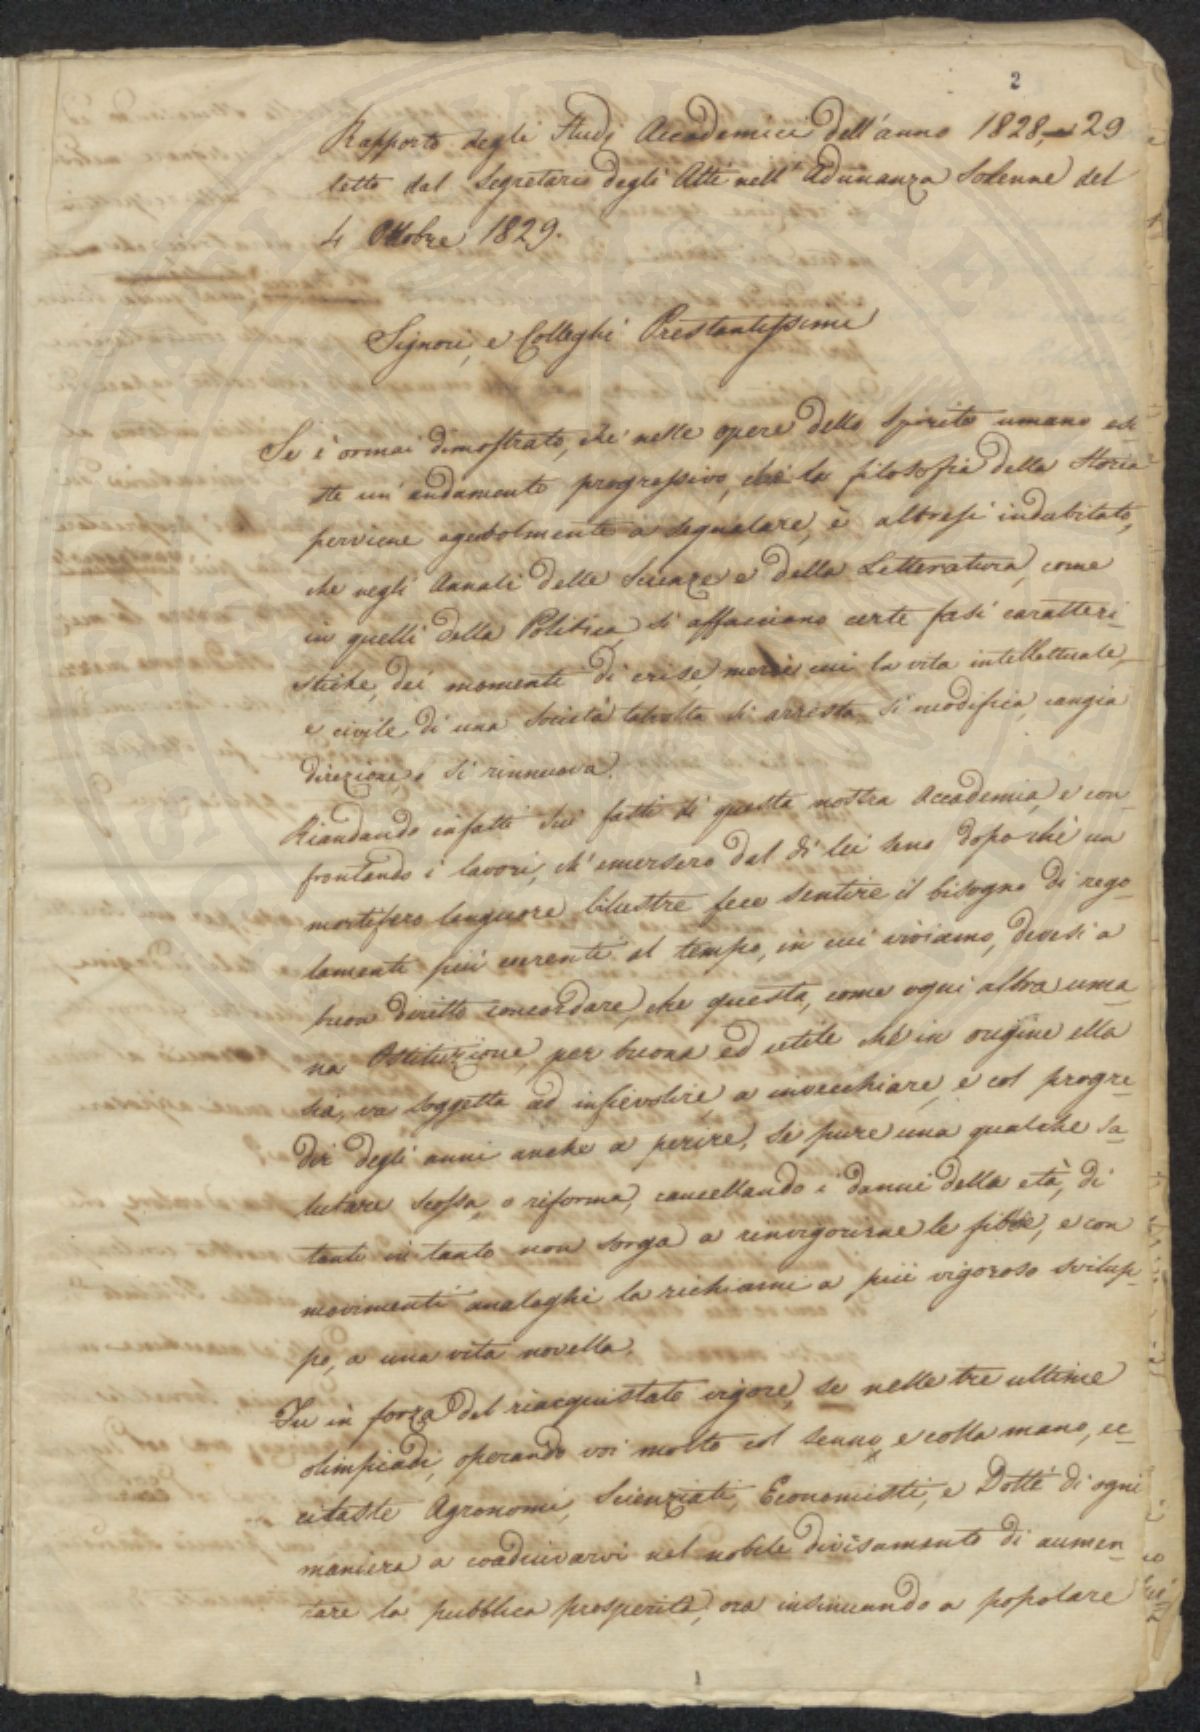 2
Rapporto degli Studj Accademici dell'anno 1828,-29
letto dal Segretario degli Atti nell'Adunanza Solenne del
4 Ottobre 1829.
Signori, e Colleghi Prestantissimi
Se è ormai dimostrato, che nelle opere dello Spirito umano esi-
ste un'andamento progressivo, che la filosofia della Storia
perviene agevolmente a segnalare, è altresì indubitato,
che negli Annali delle Scienze e della Letteratura, come
in quelli della Politica, si affacciano certe fasi caratteri-
stiche, dei momenti di crise, mercè cui la vita intellettuale,
e civile di una Società talvolta si arresta, si modifica, cangia
direzione, e si rinnuova.
Riandando infatti sui fatti di questa nostra Accademia, e con-
frontando i lavori, ch'emersero dal di lei seno dopo chè un
mortifero languore lilustre fece sentire il bisogno di rego-
lamenti più coerenti al tempo, in cui viviamo, devesi a
buon diritto concordare, che questa, come ogni altra uma-
na Istituzione, per buona ed utile chè in origine ella
sia, va soggetta ad infievolire, a invecchiare, e col progre-
dir degli anni anche a perire, se pure una qualche sa-
lutare scossa, o riforma, cancellando i danni della età, di
tanti in tanto non sorga a rinvigorirne le fibre, e con
movimenti analoghi la richiami a più vigoroso svilup-
po, a una vita novella.
Fu in forza del riacquistato vigore, se nelle tre ultime
olimpiadi, operando voi molto col senno, e colla mano, ec-
citaste Agronomi, Scienziati, Economisti, e Dotti di ogni
maniera a coadiuvarvi nel nobile divisamento di aumen-
tare la pubblica prosperità, ora insinuando a popolare
1